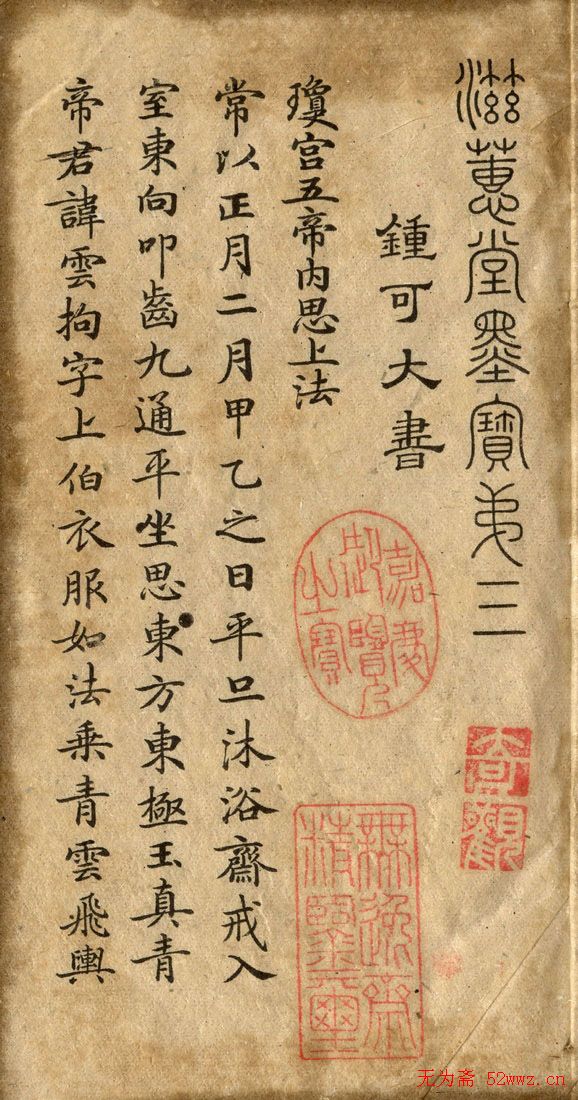 滋蕙堂墨寶弟三
鍾可大書
瓊宫五帝内思上法
常以正月二月甲乙之日平旦沐浴齋戒入
室東向叩齒九通平坐思東方東極玉真青
帝君諱雲拘字上伯衣服如法乗青雲飛輿
嘉慶御覽之寶
無逸齋精鑒璽
无为斋 52wwz.cn